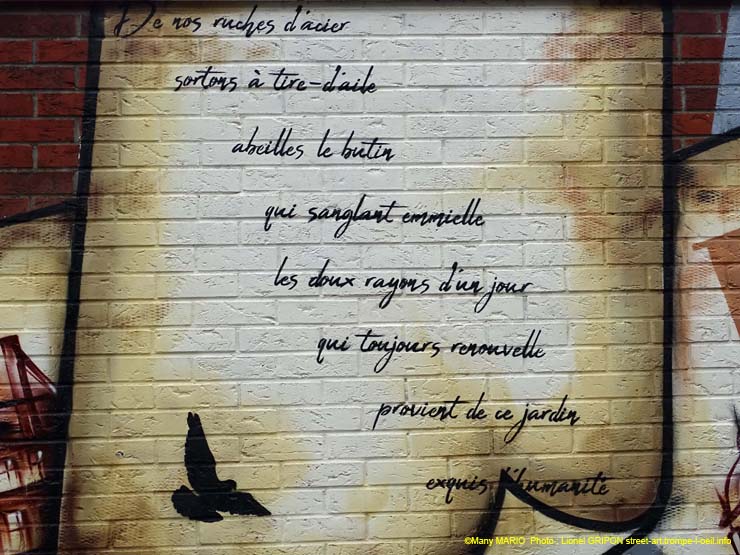 De nos ruches d'acier
sortons à tire-d'aile
abeilles le butin
qui sanglant emmielle
les doux rayons d'un jour
qui toujours renouvelle
provient de ce jardin
exquis l'humanité
©Many MARIO Photo : Lionel GRIPON street-art.trompe-l-oeil.info